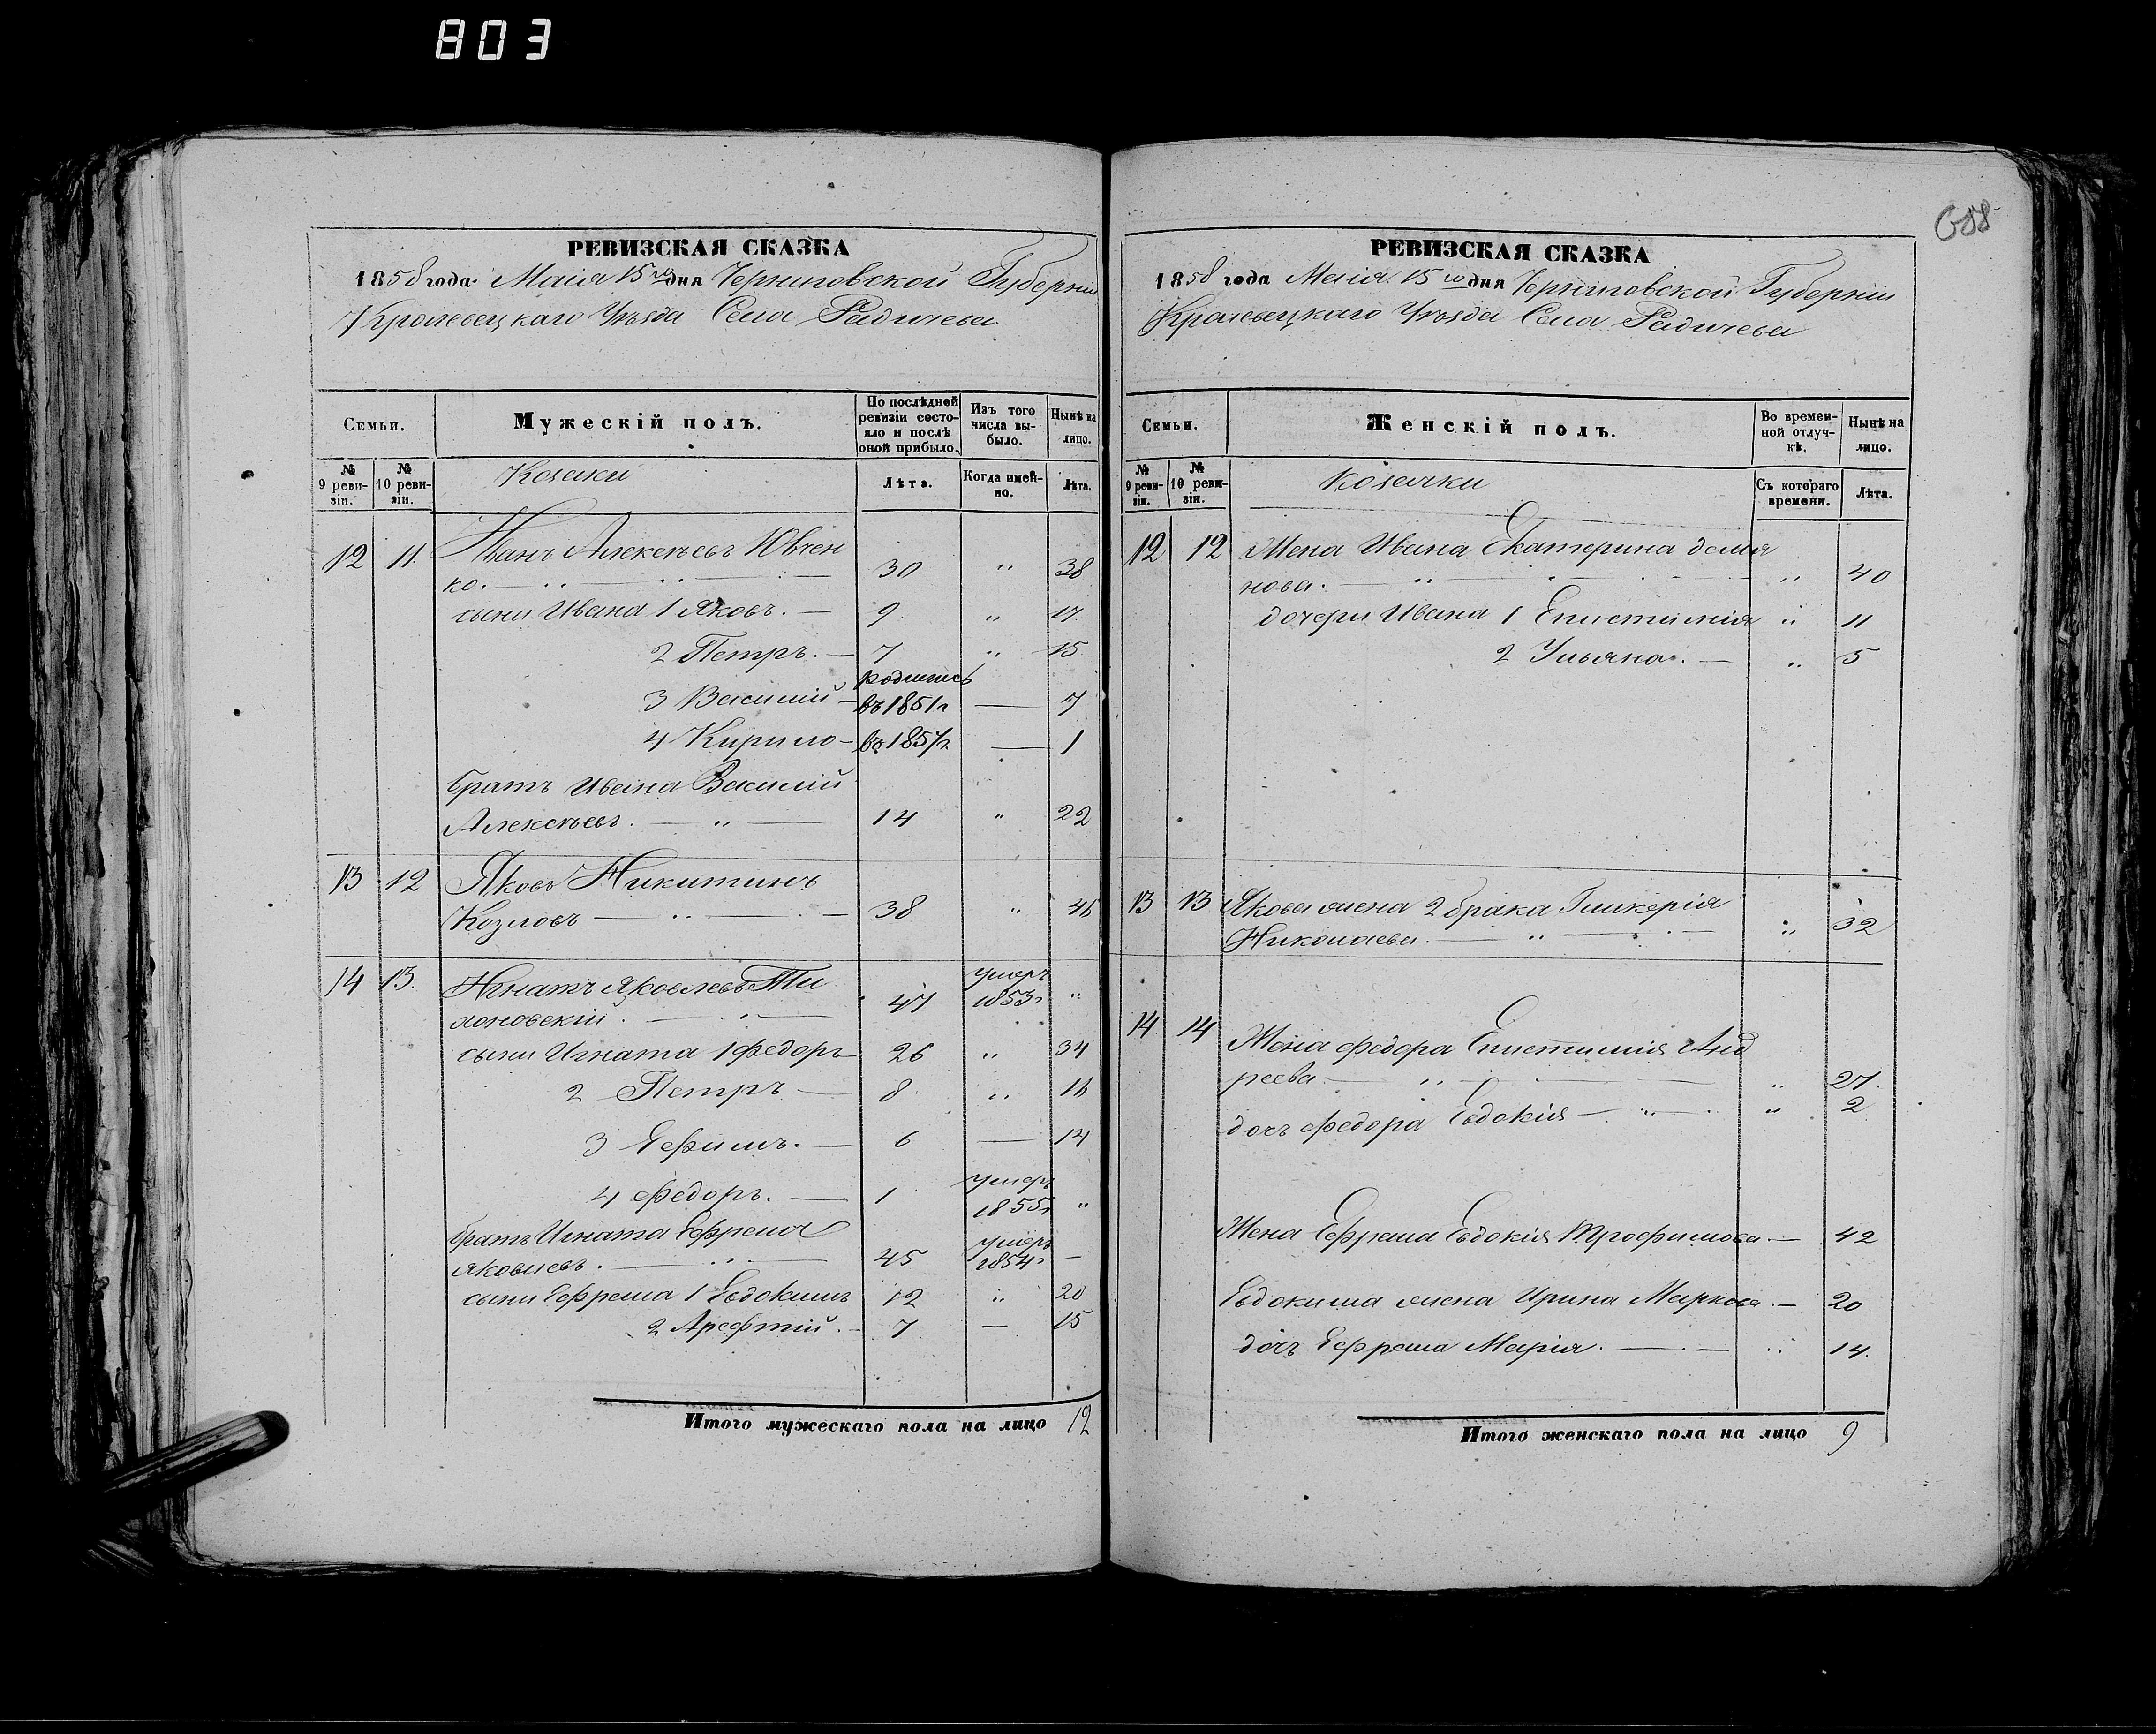 803
688
РЕВИЗСКАЯ СКАЗКА
1858 года Маія 15го дня Черниговской Губерніи
Кролевецкаго Уѣзда Села Радичева
Семьи.
Мужескій полъ.
По послѣдней ревизіи состояло и послѣ оной прибыло.
Изъ того числа выбыло.
Нынѣ на лицо.
№ 9 ревизіи.
№ 10 ревизіи.
Козаки
Лѣта.
Когда именно.
Лѣта.
12 11. Иванъ Алексѣевъ Ювчен
ко. 30 " 38
сыни Ивана 1 Яковъ. 9. " 17.
2 Петръ. 7 " 15
родились
3 Василій въ 1851г — 7
4 Кирило въ 1857г. — 1
братъ Ивана Василій
Алексѣевъ. " 14 " 22
13 12 Яковъ Никитинъ
Козловъ " 38 " 46
14 13. Игнатъ Яковлевъ Ти умеръ
хоновскій. 47 1853г "
сыни Игната 1 Федоръ 26 " 34
2 Петръ 8. " 16
3 Ефимъ. 6 — 14
4 Федоръ. 1 умеръ 1855г "
братъ Игната Ефремъ умеръ
Яковлевъ. 45 1854г —
сыни Ефрема 1 Евдокимъ 12 " 20
2 Арефтій. 7 — 15
Итого мужескаго пола на лицо 12
РЕВИЗСКАЯ СКАЗКА
1858 года Маія 15го дня Черниговской Губерніи
Кролевецкаго Уѣзда Села Радичева
Семьи.
Женскій полъ.
Во временной отлучкѣ.
Нынѣ на лицо.
№ 9 ревизіи.
№ 10 ревизіи.
Козачки
Съ котораго времени.
Лѣта.
12 12 Жена Ивана Екатерина Демья
нова. " 40
дочери Ивана 1 Епистимія " 11
2 Ульяна. " 5
13 13 Якова жена 2 брака Гликерія
Николаева. " 32
14 14 Жена Федора Епистимія Анд
реева " 27.
дочь Федора Евдокія " 2
Жена Ефрема Евдокія Трофимова. 42
Евдокима жена Ирина Маркова. 20
дочь Ефрема Марія. " 14.
Итого женскаго пола на лицо 9